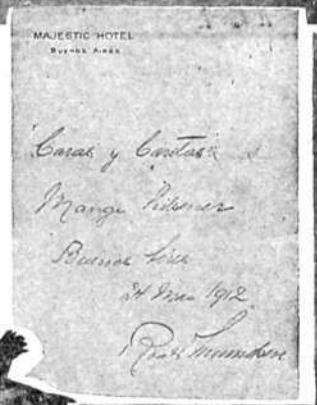 MAJESTIC HOTEL
BUENOS AIRES
"Caras y Caretas"
Mange Hilsener
Buenos Aires
24 Mai 1912
Roald Amundsen